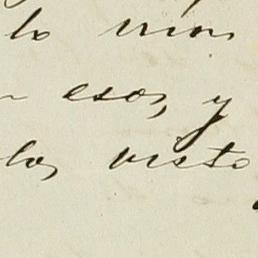 lo mon
esos, y
los visto